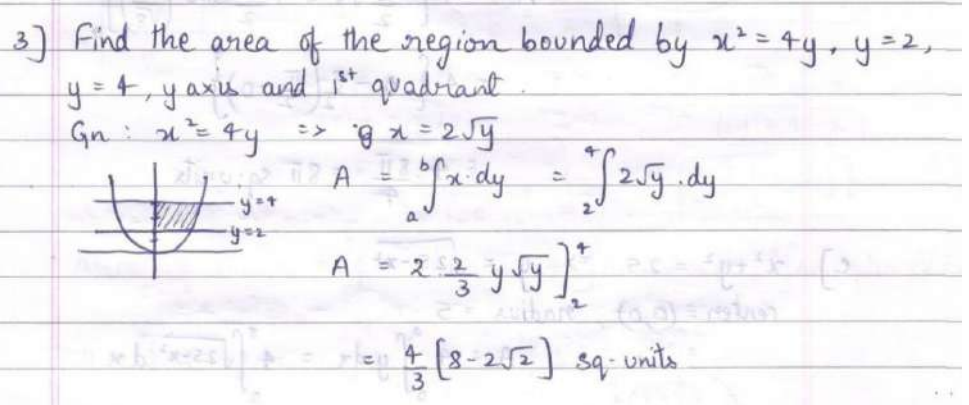 3] Find the area of the region bounded by x² = 4y, y = 2,
y = 4, y axis and 1st quadrant.
Gn : x² = 4y => x = 2√y
A = ᵇ∫ₐ x·dy = ⁴∫₂ 2√y .dy
y=4
y=2
A = 2 2/3 y√y ]⁴₂
= 4/3 [8-2√2] sq. units